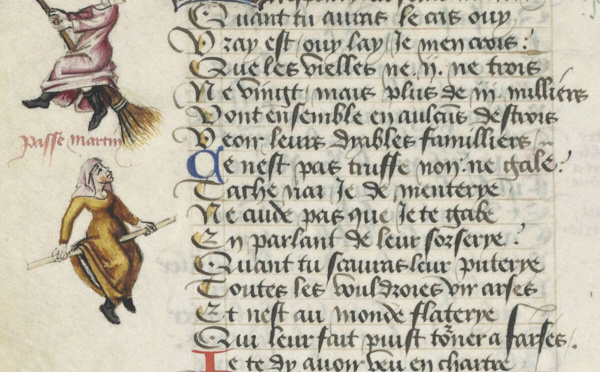 Quant tu auras le cas ouy
Vray est ouy lay Je men crois.
Que les vielles ne .ij. ne trois
Ne vingt mais plus de iij. milliers
Vont ensemble en aulcuns destrois
Veoir leurs dyables familliers
passe martin
Ce nest pas truffe non ne gale.
Tache nay Je de menterye
Ne cuide pas que Je te gabe
En parlant de leur sorserye.
Quant tu scauras leur puterye
Toutes les vouldroies vir arses
Et nest au monde flaterye
Qui leur fait puist torner a farses.
Je te dy avoir veu en chartre